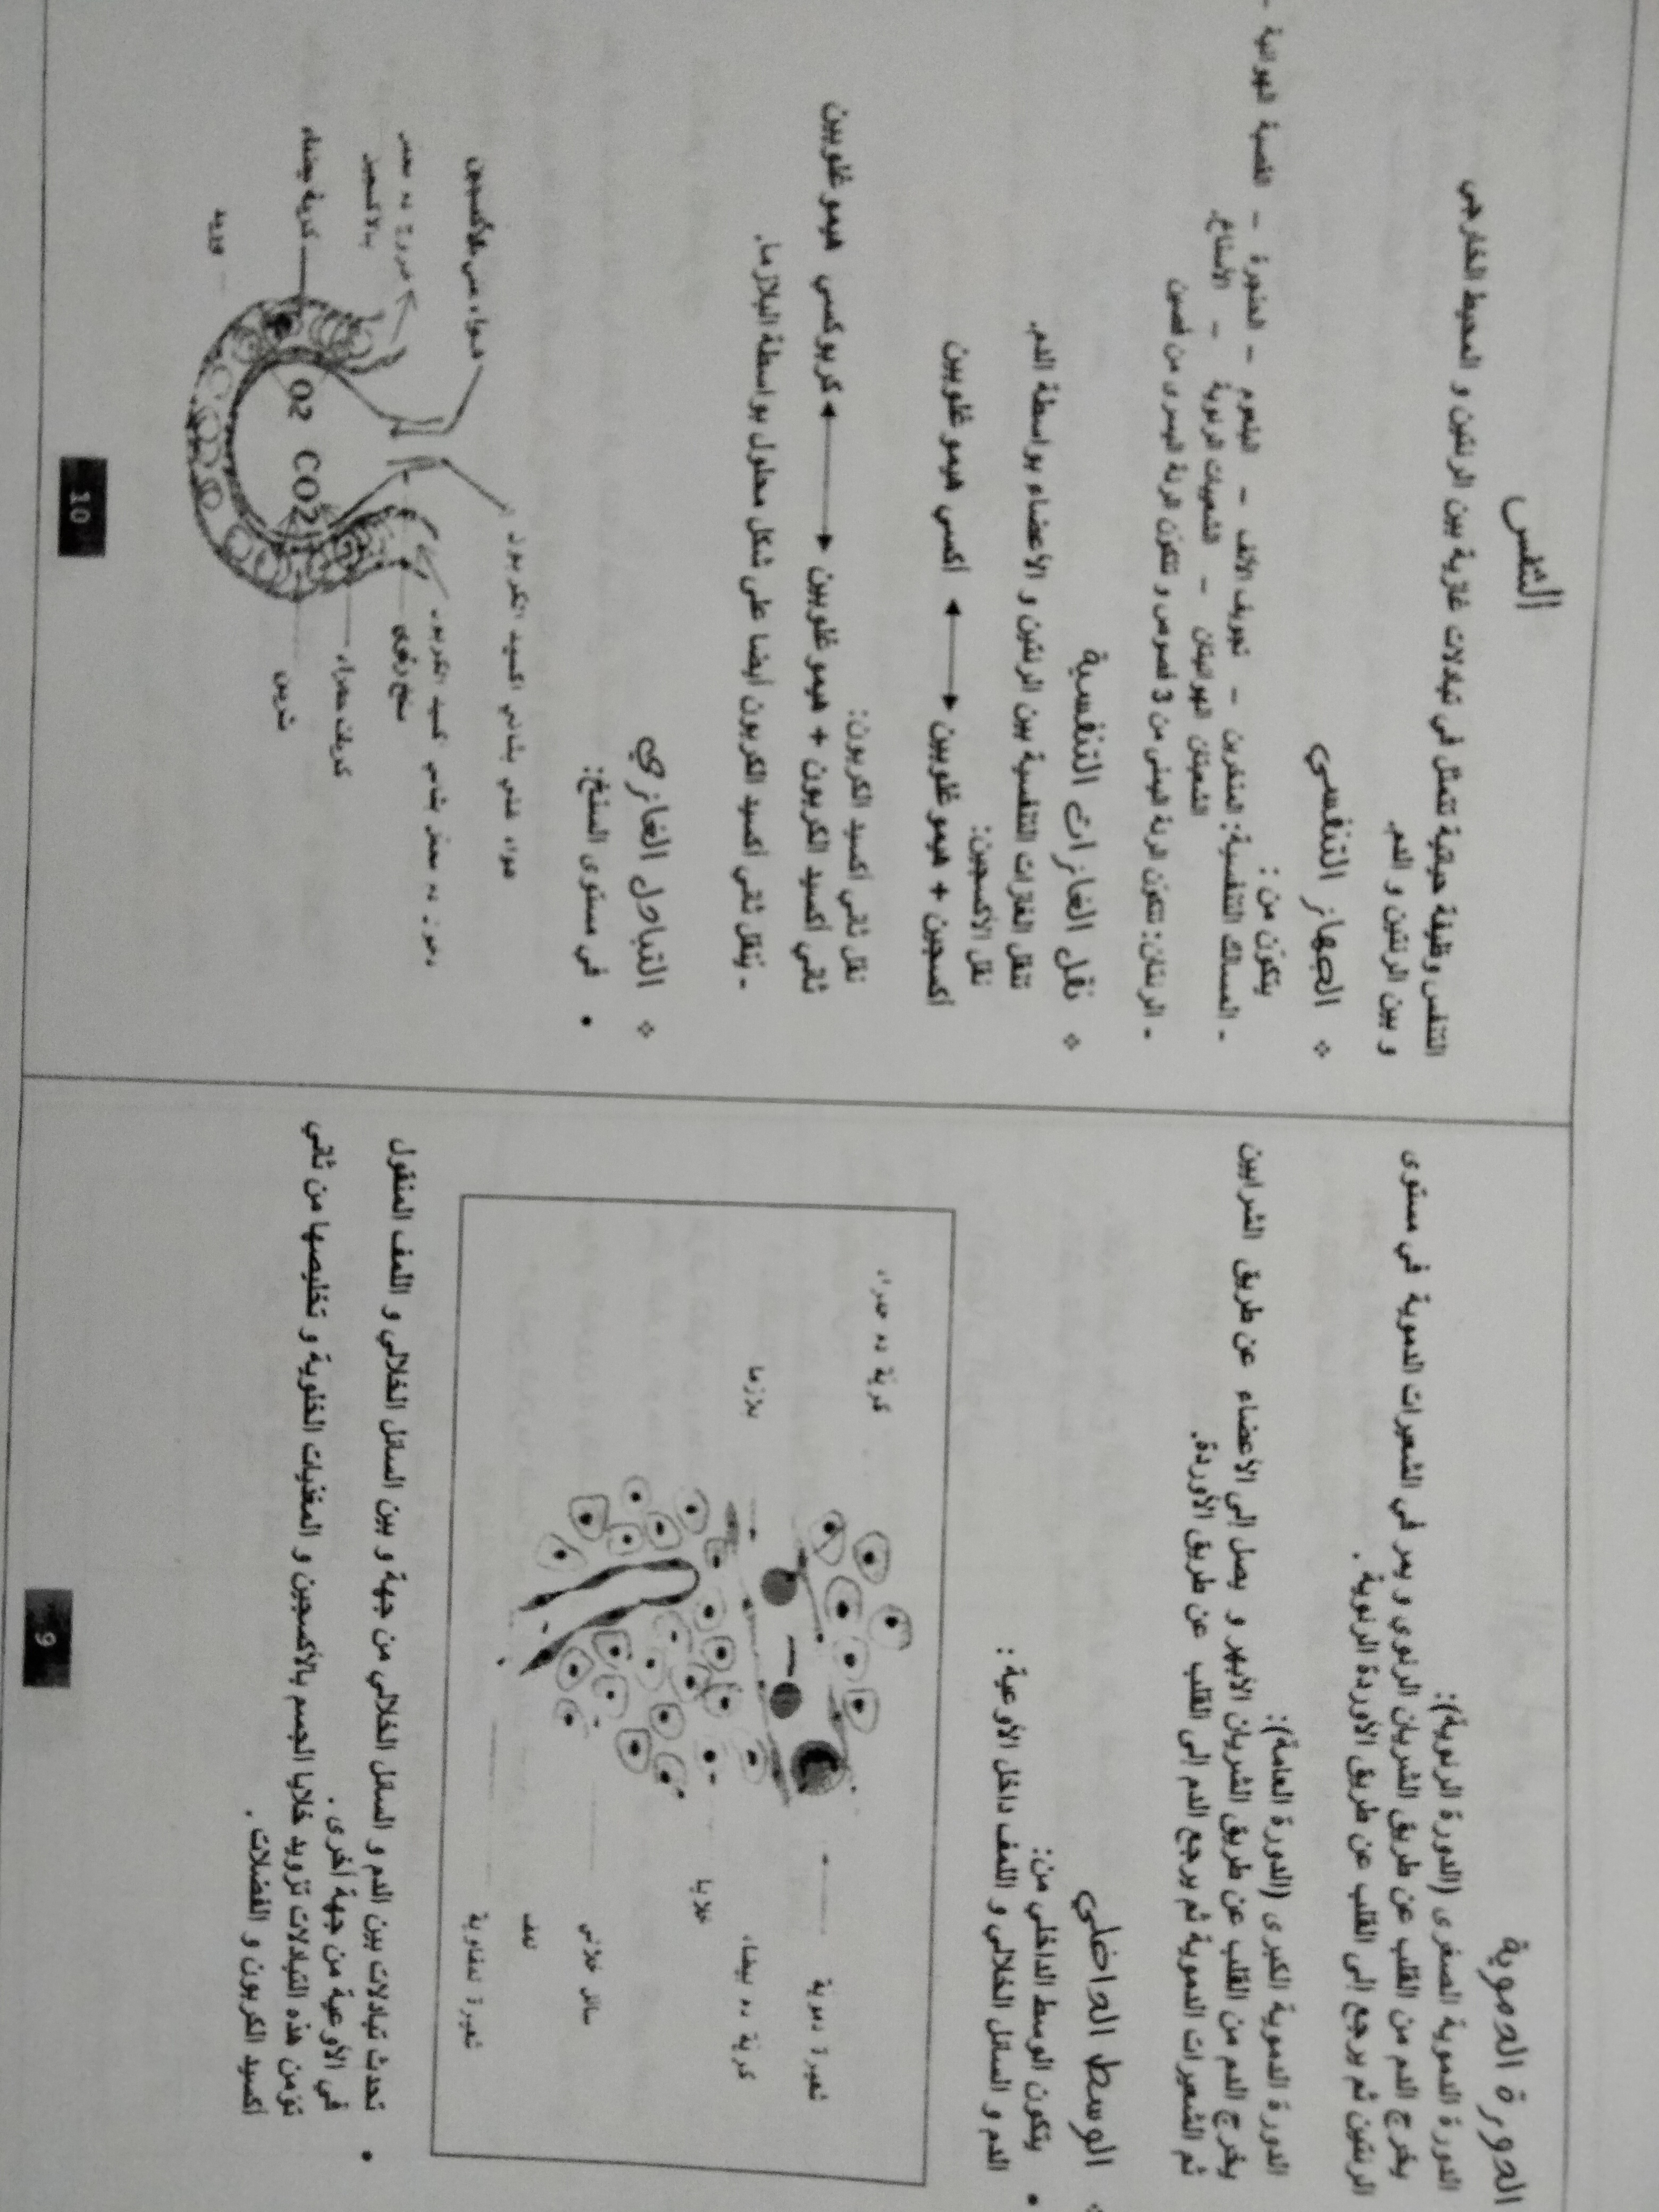 الدورة الدموية
الدورة الدموية الصغرى (الدورة الرئوية):
يخرج الدم من القلب عن طريق الشريان الرئوي و يمر في الشعيرات الدموية في مستوى
الرئتين ثم يرجع إلى القلب عن طريق الأوردة الرئوية.
الدورة الدموية الكبرى (الدورة العامة):
يخرج الدم من القلب عن طريق الشريان الأبهر و يصل إلى الأعضاء عن طريق الشرايين
ثم الشعيرات الدموية ثم يرجع الدم إلى القلب عن طريق الأوردة.
الوسط الداخلي
• يتكون الوسط الداخلي من:
الدم و السائل الخلالي و اللمف داخل الأوعية:
كرية دم حمراء
بلازما
شعيرة دموية
كرية دم بيضاء
خلايا
سائل خلالي
لمف
شعيرة لمفاوية
• تحدث تبادلات بين الدم و السائل الخلالي من جهة و بين السائل الخلالي و اللمف المنقول
في الأوعية من جهة أخرى.
تؤمن هذه التبادلات تزويد خلايا الجسم بالأكسجين و المغذيات الخلوية و تخليصها من ثاني
أكسيد الكربون و الفضلات.
9
التنفس
التنفس وظيفة حياتية تتمثل في تبادلات غازية بين الرئتين و المحيط الخارجي
و بين الرئتين و الدم.
❖ الجهاز التنفسي
يتكون من:
- المسالك التنفسية: المنخرين – تجويف الأنف – البلعوم – الحنجرة – القصبة الهوائية –
الشعبتان الهوائيتان – الشعيبات الرئوية – الأسناخ.
- الرئتان: تتكون الرئة اليمنى من 3 فصوص و تتكون الرئة اليسرى من فصين
❖ نقل الغازات التنفسية
تنقل الغازات التنفسية بين الرئتين و الأعضاء بواسطة الدم.
نقل الأكسجين:
أكسجين + هيموغلوبين ◄──► أكسي هيموغلوبين
نقل ثاني أكسيد الكربون:
ثاني أكسيد الكربون + هيموغلوبين ◄──► كربوكسي هيموغلوبين
- ينقل ثاني أكسيد الكربون أيضا على شكل محلول بواسطة البلازما.
❖ التبادل الغازي
• في مستوى السنخ:
هواء غني بثاني أكسيد الكربون
هواء غني بالأكسجين
سنخ رئوي
كريات حمراء
شريين
كرية بيضاء
وريد
O2 CO2
10